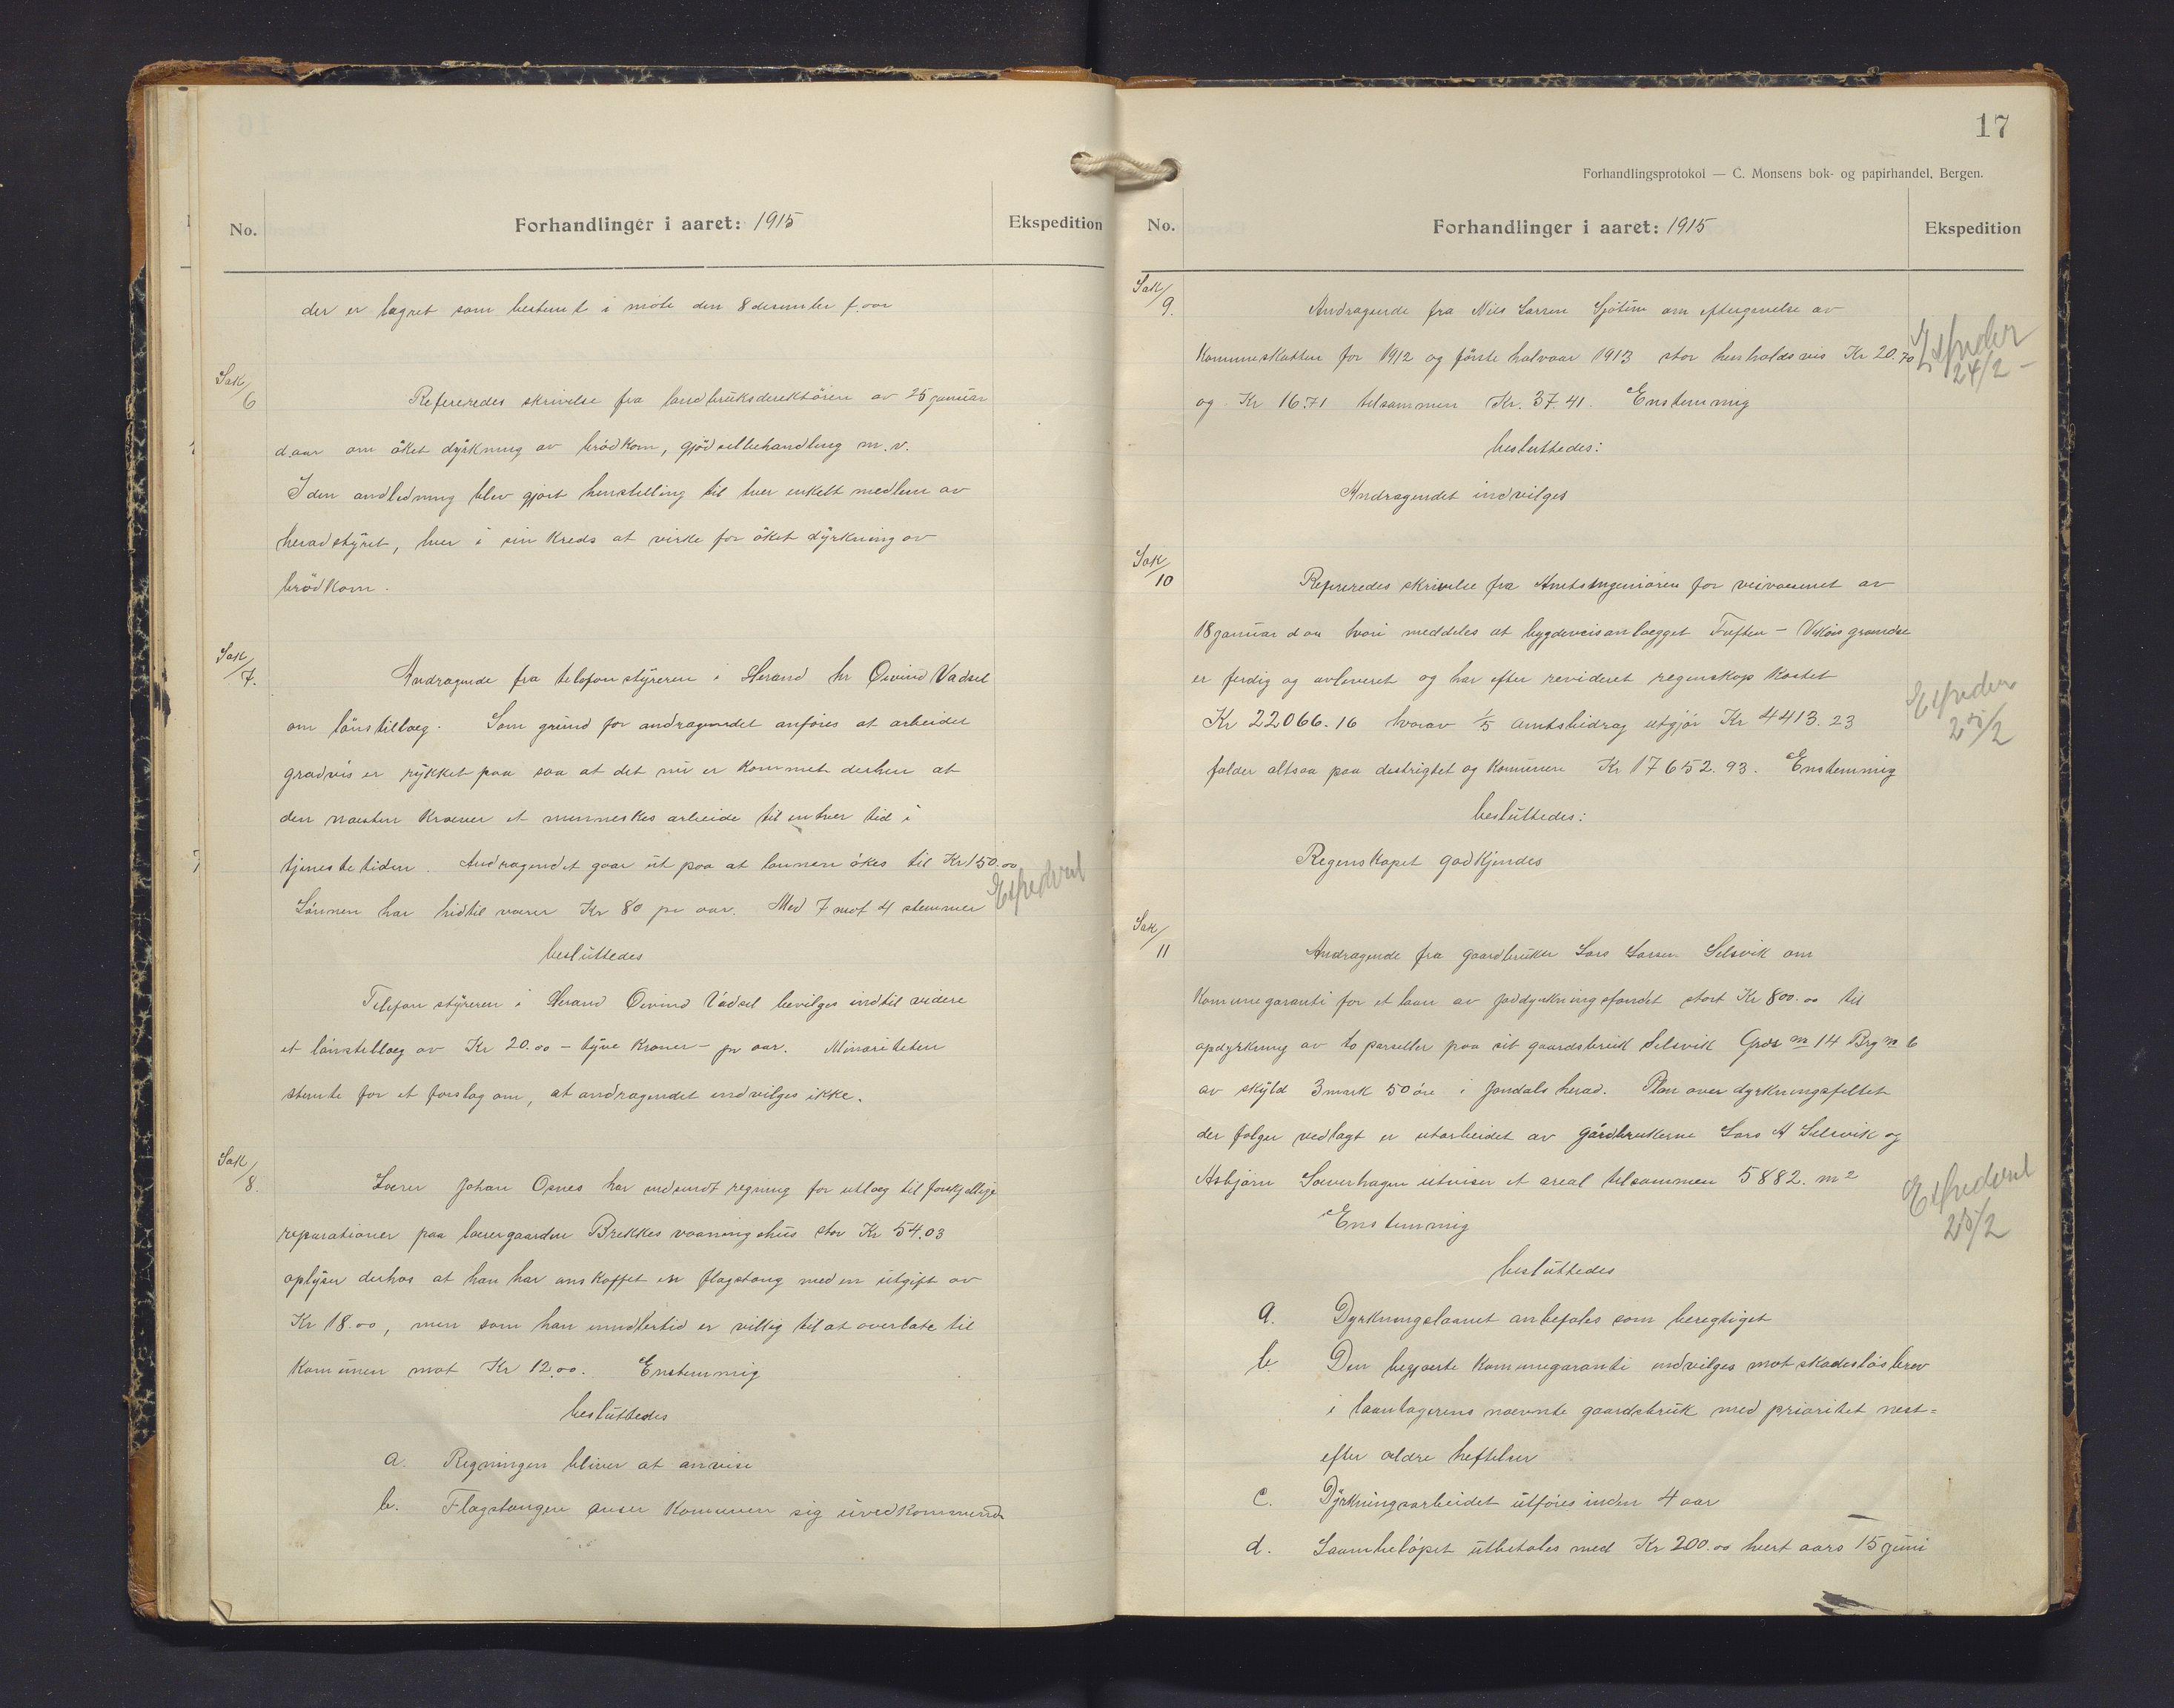 No.
Forhandlinger i aaret: 1915
Ekspedition
der er lagret som bestemt i møte den 8 desember f. aar
Sak/6
Refereredes skrivelse fra landbruksdirektören av 25 januar
d.aar om øket dyrkning av brödkorn, gjödselbehandling m.v.
I den andledning blev gjort henstilling til hver enkelt medlem av
heradstyret, hver i sin kreds at virke for øket dyrkning av
brödkorn.
Sak/7.
Andragende fra telefonstyreren i Herand hr Øivind Vadsel
om lönstillæg. Som grund for andragendet anføres at arbeidet
gradvis er rykket paa saa at det nu er kommet derhen at
den næsten kræver et menneskes arbeide til enhver tid i
tjenestetiden. Andragendet gaar ut paa at lønnen økes til Kr 150.00
Lönnen har hidtil været Kr 80 pr aar. Med 7 mot 4 stemmer
Ekspedert
besluttedes
Telefonstyreren i Herand Øivind Vadsel bevilges indtil videre
et lönstillæg av Kr 20.00 – tyve kroner – pr aar. Minoriteten
stemte for et forslag om, at andragendet indvilges ikke.
Sak/8.
Lærer Johan Opnes har indsendt regning for utlæg til forskjellige
reparationer paa lærergaarden Brekkes vaaningshus stor Kr 54.03
oplyser derhos at han har anskaffet en flagstang med en utgift av
Kr 18.00, men som han imidlertid er villig til at overlate til
Komunen mot Kr 12.00. Enstemmig
besluttedes
a. Regningen bliver at anvise
b. Flagstangen anser Komunen sig uvedkommende
17
Forhandlingsprotokol — C. Monsens bok- og papirhandel, Bergen.
No.
Forhandlinger i aaret: 1915
Ekspedition
Sak/9.
Andragende fra Nils Larsen Sjötun om eftergivelse av
Kommuneskatten for 1912 og første halvaar 1913 stor henholdsvis Kr 20.70
og Kr 16.71 tilsammen Kr. 37.41. Enstemmig
24/2
besluttedes:
Andragendet indvilges
Sak/10
Refereredes skrivelse fra Amtsingeniøren for veivæsenet av
18 januar d aa hvori meddeles at bygdeveisanlægget Tveften – Vikøis grændse
er ferdig og avleveret og har efter revideret regnskap kostet
Kr 22066.16 hvorav 1/5 amtsbidrag utgjör Kr 4413.23
falder altsaa paa distrigtet og komunen Kr 17652.93. Enstemmig
25/2
besluttedes:
Regnskapet godkjendes
Sak/11
Andragende fra gaardbruker Lars Larsen Selsvik om
Komunegaranti for et laan av jorddyrkningsfondet stort Kr 800.00 til
opdyrkning av to parseller paa sit gaardsbruk Selsvik Grds no 14 Brg no 6
av skyld 3 mark 50 øre i Jondals herad. Plan over dyrkningsfeltet
der følger vedlagt er utarbeidet av gårdbrukerne Lars A Selsvik og
Asbjørn Sæverhagen utviser et areal tilsammen 5882. m2
Enstemmig
Ekspedert 25/2
besluttedes
a. Dyrkningslaanet anbefales som beregtiget
b. Den begjærte Komunegaranti indvilges mot skadesløsbrev
i laantagerens nævnte gaardsbruk med prioritet nest-
efter ældre heftelser
c. Dyrkningsarbeidet utføres inden 4 aar
d. Laanebeløpet utbetales med Kr 200.00 hvert aars 15 juni